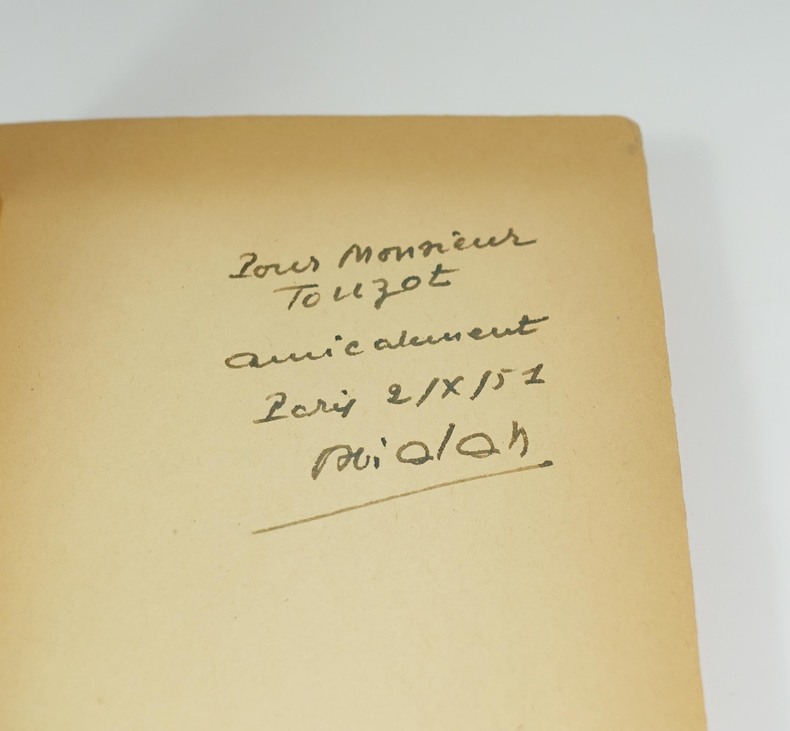 Pour Monsieur
Touzot
amicalement
Paris 2/X/51